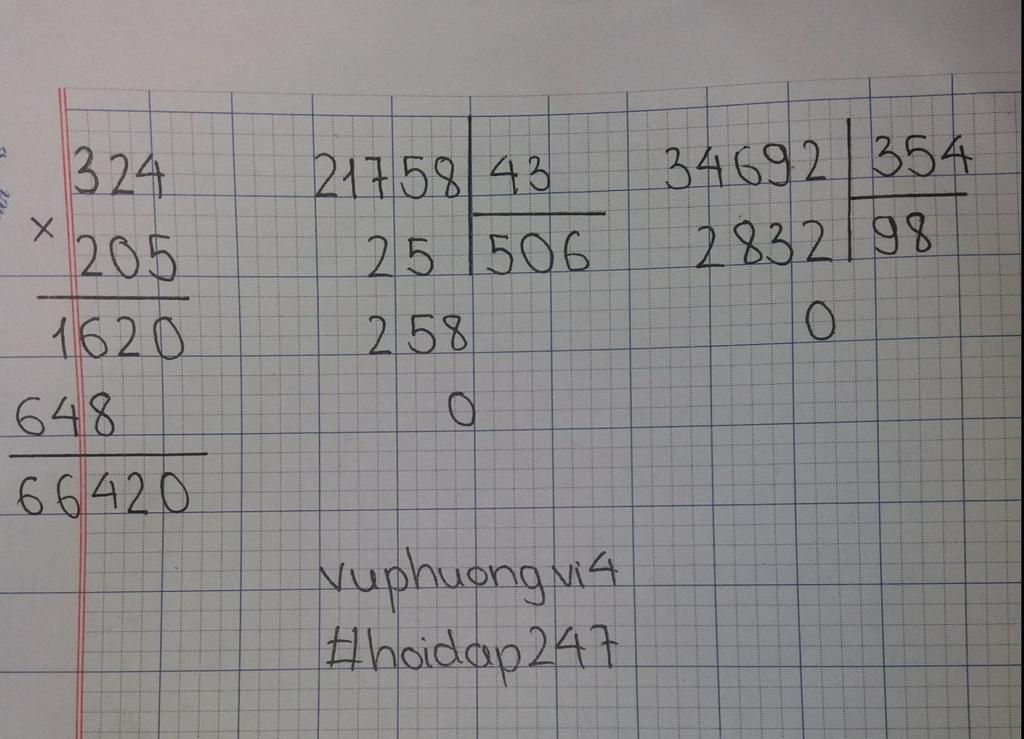 324 21758 43 34692 354
×
205 25 506 2832 98
1620 258 0
648 0
66420
vuphuongvi4
#hoidap247